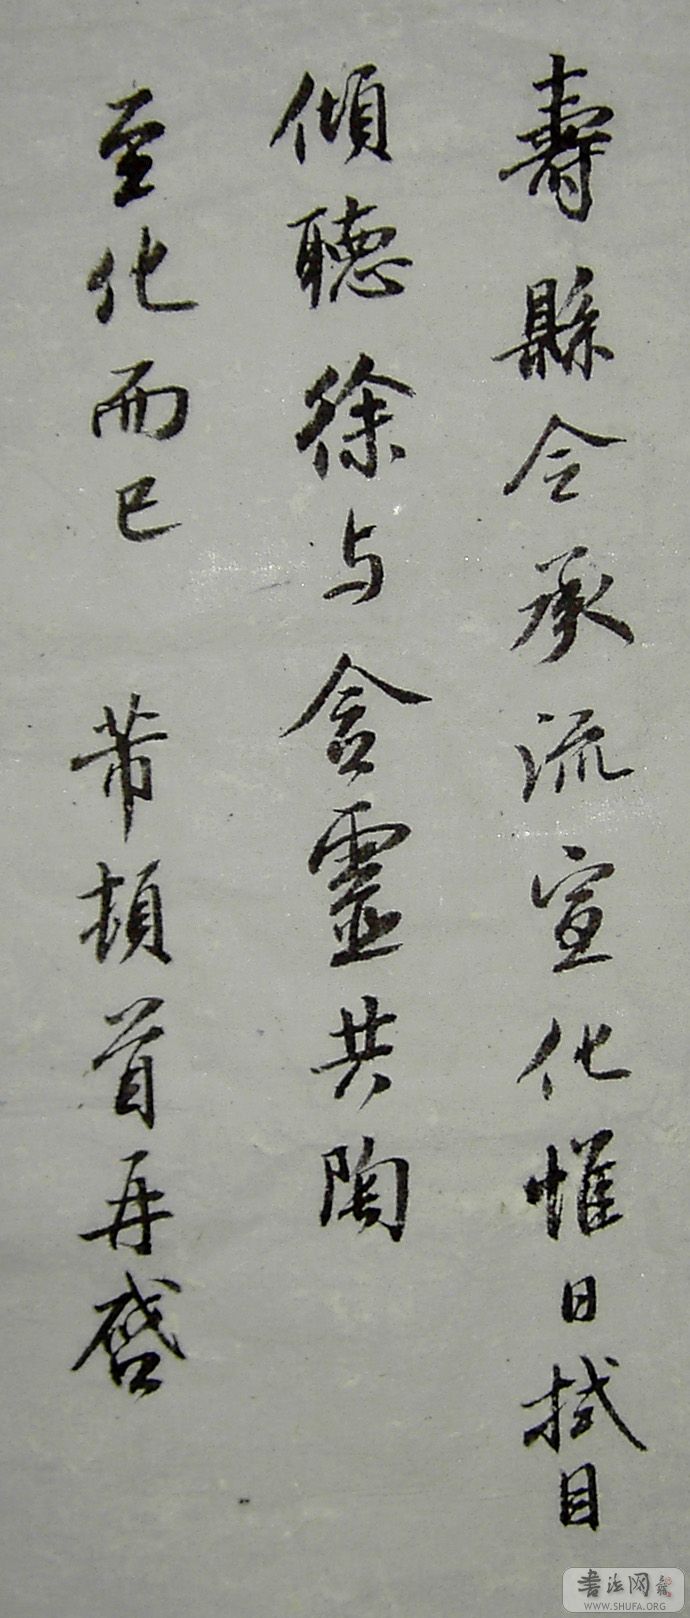 壽縣令承流宣化惟日拭目
傾聽徐与含靈共陶
至化而已 芾頓首再啓
書法网
WWW.SHUFA.ORG